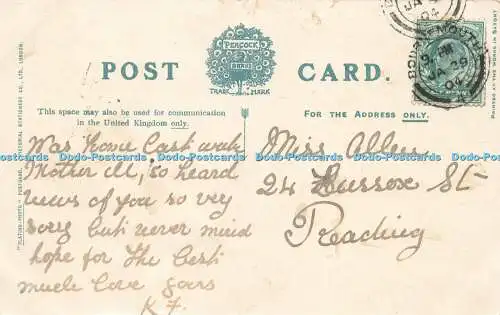 POST CARD.
PEACOCK
BRAND
TRADE MARK
This space may also be used for communication
in the United Kingdom only.
FOR THE ADDRESS ONLY.
"PLATINO-PHOTO" POSTCARD.
PICTORIAL STATIONERY CO., LTD., LONDON.
PRINTED AT THE WORKS IN SAXONY
BOURNEMOUTH
JA 29
04
Was Home Last week
Mother ill, so heard
news of you so very
sorry but never mind
hope for the best
much love yours
K F.
Miss Allen
24 Sussex St
Reading
Dodo-Postcards Dodo-Postcards Dodo-Postcards Dodo-Postcards